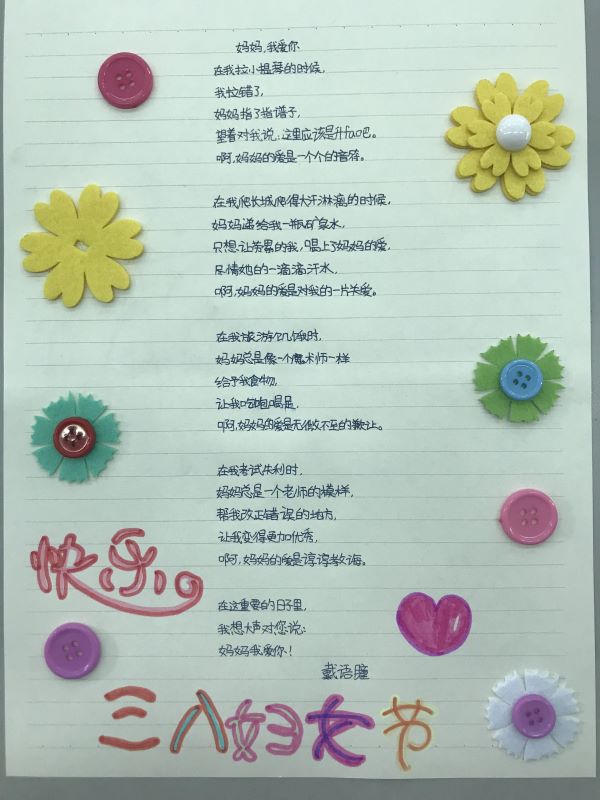 妈妈,我爱你
在我拉小提琴的时候,
我拉错了,
妈妈指了指谱子,
望着对我说:这里应该是升fa吧。
啊,妈妈的爱是一个个的音符。
在我爬长城爬得大汗淋漓的时候,
妈妈递给我一瓶矿泉水,
只想让劳累的我,喝上了妈妈的爱,
尽情她的一滴滴汗水,
啊,妈妈的爱是对我的一片关爱。
在我旅游饥饿时,
妈妈总是像一个魔术师一样
给予我食物,
让我吃饱喝足,
啊,妈妈的爱是无微不至的谦让。
在我考试失利时,
妈妈总是一个老师的模样,
帮我改正错误的地方,
让我变得更加优秀,
啊,妈妈的爱是谆谆教诲。
在这重要的日子里,
我想大声对您说:
妈妈我爱你!
戴语瞳
快乐
三八妇女节